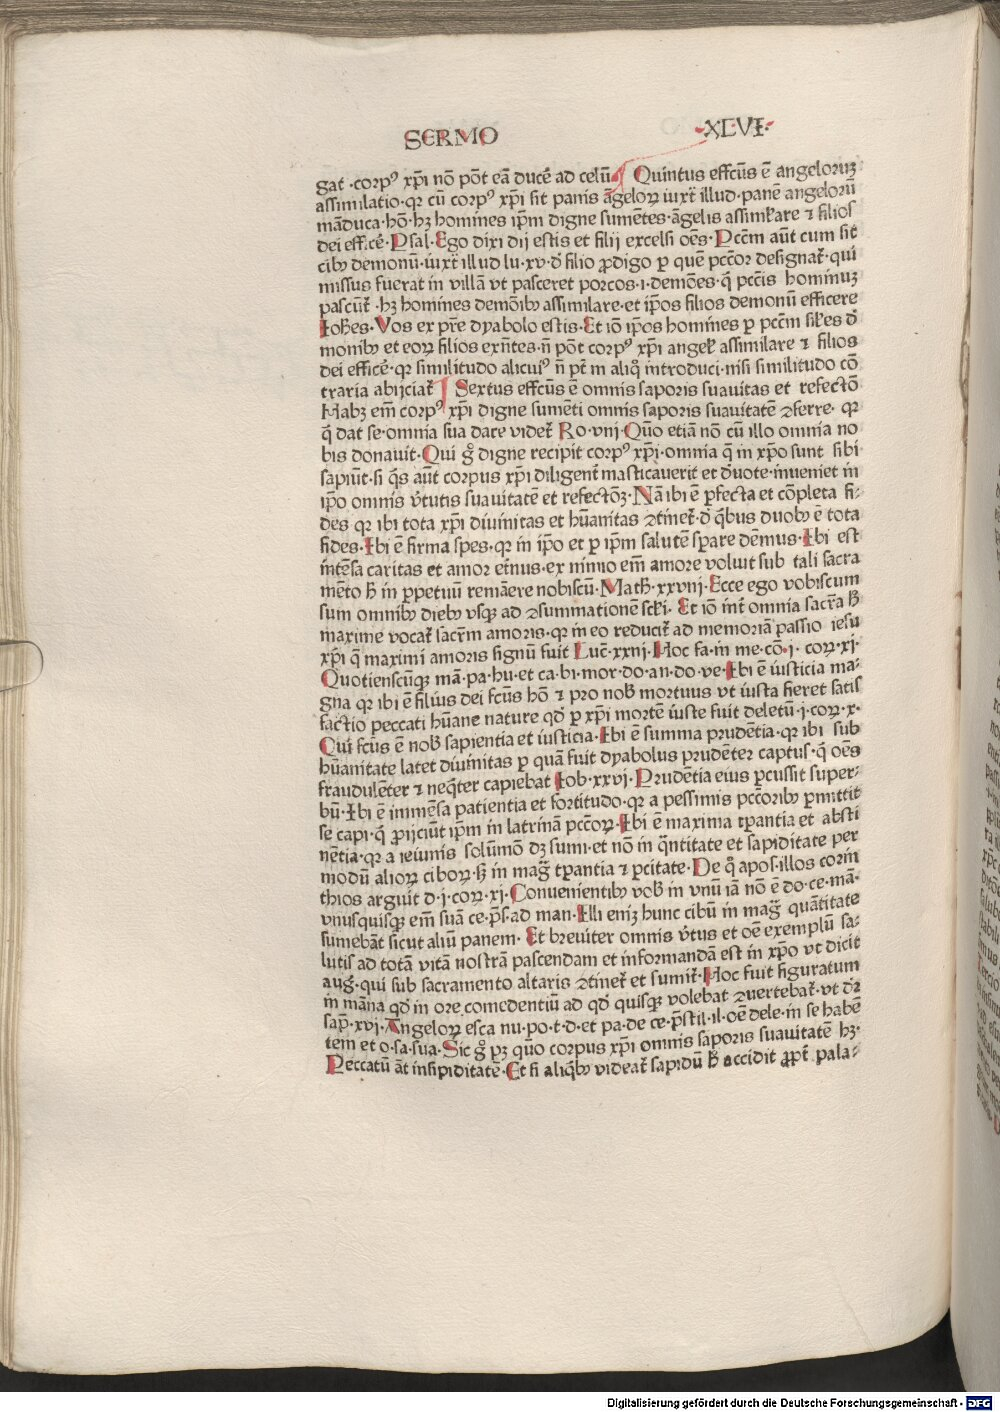 SERMO ·XLVI·
gat ·corpꝰ xp̄i nō pōt eā ducē ad celū ¶ Quintus effcūs ē angeloruꝫ
assimilatio·qꝛ cū corpꝰ xp̄i sit panis āgeloꝝ iuxt̄ illud·panē angeloꝝ
māduca·hō·hꝫ homines ip̄m digne sumētes·āgelis assimilare ⁊ filios
dei efficē·Psal·Ego dixi dij estis et filij excelsi oēs·Pccm̄ aūt cum sit
cibꝰ demonū·iuxt̄ illud lu·xv·d̄ filio ꝓdigo ꝑ quē pcc̄or designat̄·qui
missus fuerat in villā vt pasceret porcos·i·demōes·q̄ pcc̄is hominuꝫ
pascūt̄ ·hꝫ homines demōibꝰ assimilare·et ip̄os filios demonū efficere
Ioh̄es·Vos ex pr̄e dyabolo estis·Et iō ip̄os homines ꝑ pccm̄ sil̄es d̄
monibꝰ et eoꝝ filios exn̄tes·n̄ pōt corpꝰ xp̄i angel̄ assimilare ⁊ filios
dei efficē·qꝛ similitudo alicuiꝰ n̄ pt̄ in aliq̄ introduci·nisi similitudo cō
traria abijciat̄ ¶ Sextus effcūs ē omnis saporis suauitas et refectō
Habꝫ em̄ corpꝰ xp̄i digne sumēti omnis saporis suauitatē ꝯferre· qꝛ
q̄ dat se·omnia sua dare videt̄ Ro·viij·Quō etiā nō cū illo omnia no
bis donauit·Qui gͦ digne recipit corpꝰ xp̄i·omnia q̄ in xp̄o sunt sibi
sapiūt·si q̄s aūt corpus xp̄i diligent̄ masticauerit et d̄uote·inueniet in
ip̄o omnis v̄tutis suauitatē et refectōꝫ·Nā ibi ē ꝑfecta et cōpleta fi⸗
des qꝛ ibi tota xp̄i diuinitas et hūanitas ꝯtinet̄·d̄ q̄bus duobꝰ ē tota
fides·Ibi ē firma spes·qꝛ in ip̄o et ꝑ ip̄m salutē sꝑare dēmus·Ibi est
intēsa caritas et amor et̄nus·ex nimio em̄ amore voluit sub tali sacra
mēto h̄ in ꝑpetuū remāere nobiscū·Math̄·xxviij·Ecce ego vobiscum
sum omnibꝰ diebꝰ vsqꝫ ad ꝯsummationē scl̄i· Et iō int̄ omnia sacr̄a h̄
maxime vocat̄ sacr̄m amoris·qꝛ in eo reducit̄ ad memoriā passio iesu
xp̄i q̄ maximi amoris signū fuit Luc̄·xxij·Hoc fa·in me·cō·j· coꝝ·xj·
Quotienscūqꝫ mā·pa·hu·et ca·bi·mor·do·an·do·ve·Ibi ē iusticia ma⸗
gna qꝛ ibi ē filius dei fcūs hō ⁊ pro nob̄ mortuus vt iusta fieret satis
factio peccati hūane nature qd̄ ꝑ xp̄i mortē iuste fuit deletū·j·coꝝ·x·
Qui fcūs ē nob̄ sapientia et iusticia·Ibi ē summa prudētia·qꝛ ibi sub
hūanitate latet diuinitas ꝑ quā fuit dyabolus prudēter captus·q̄ oēs
fraudulēter ⁊ neq̄ter capiebat Iob·xxvj·Prudētia eius ꝑcussit super⸗
bū·Ibi ē immēsa patientia et fortitudo·qꝛ a pessimis pcc̄oribꝰ ꝑmittit
se capi·q̄ ꝓijciūt ip̄m in latrinā pcc̄oꝝ·Ibi ē maxima tꝑantia et absti
nētia·qꝛ a ieiunis solūmō dꝫ sumi·et nō in q̄ntitate et sapiditate per
modū alioꝝ ciboꝝ·sꝫ in maḡ tꝑantia ⁊ ꝑcitate·De q̄ apos·illos corin
thios arguit d·j·coꝝ·xj·Conuenientibꝰ vob̄ in vnū iā nō ē do·ce·mā·
vnusquisqꝫ em̄ suā ce·p̄s·ad man·Illi eniꝫ hunc cibū in maḡ quātitate
sumebāt sicut aliū panem· Et breuiter omnis v̄tus et oē exemplū sa⸗
lutis ad totā vitā nostrā pascendam et informandā est in xp̄o vt dicit
auḡ·qui sub sacramento altaris ꝯtinet̄ et sumit̄·Hoc fuit figuratum
in māna qd̄ in ore comedentiū ad qd̄ quisqꝫ volebat ꝯuertebat̄·vt d̄r
sap̄·xvj·Angeloꝝ esca nu·po·t·d·et pa·de ce·p̄stit·il·oē dele·in se habē
tem et o·sa·sua·Sic gͦ pꝫ quō corpus xp̄i omnis saporis suauitatē hꝫ·
Peccatū āt insipiditatē·Et si aliq̄bꝰ videat̄ sapidū h̄ accidit ꝓpt̄ pala⸗
Digitalisierung gefördert durch die Deutsche Forschungsgemeinschaft - DFG